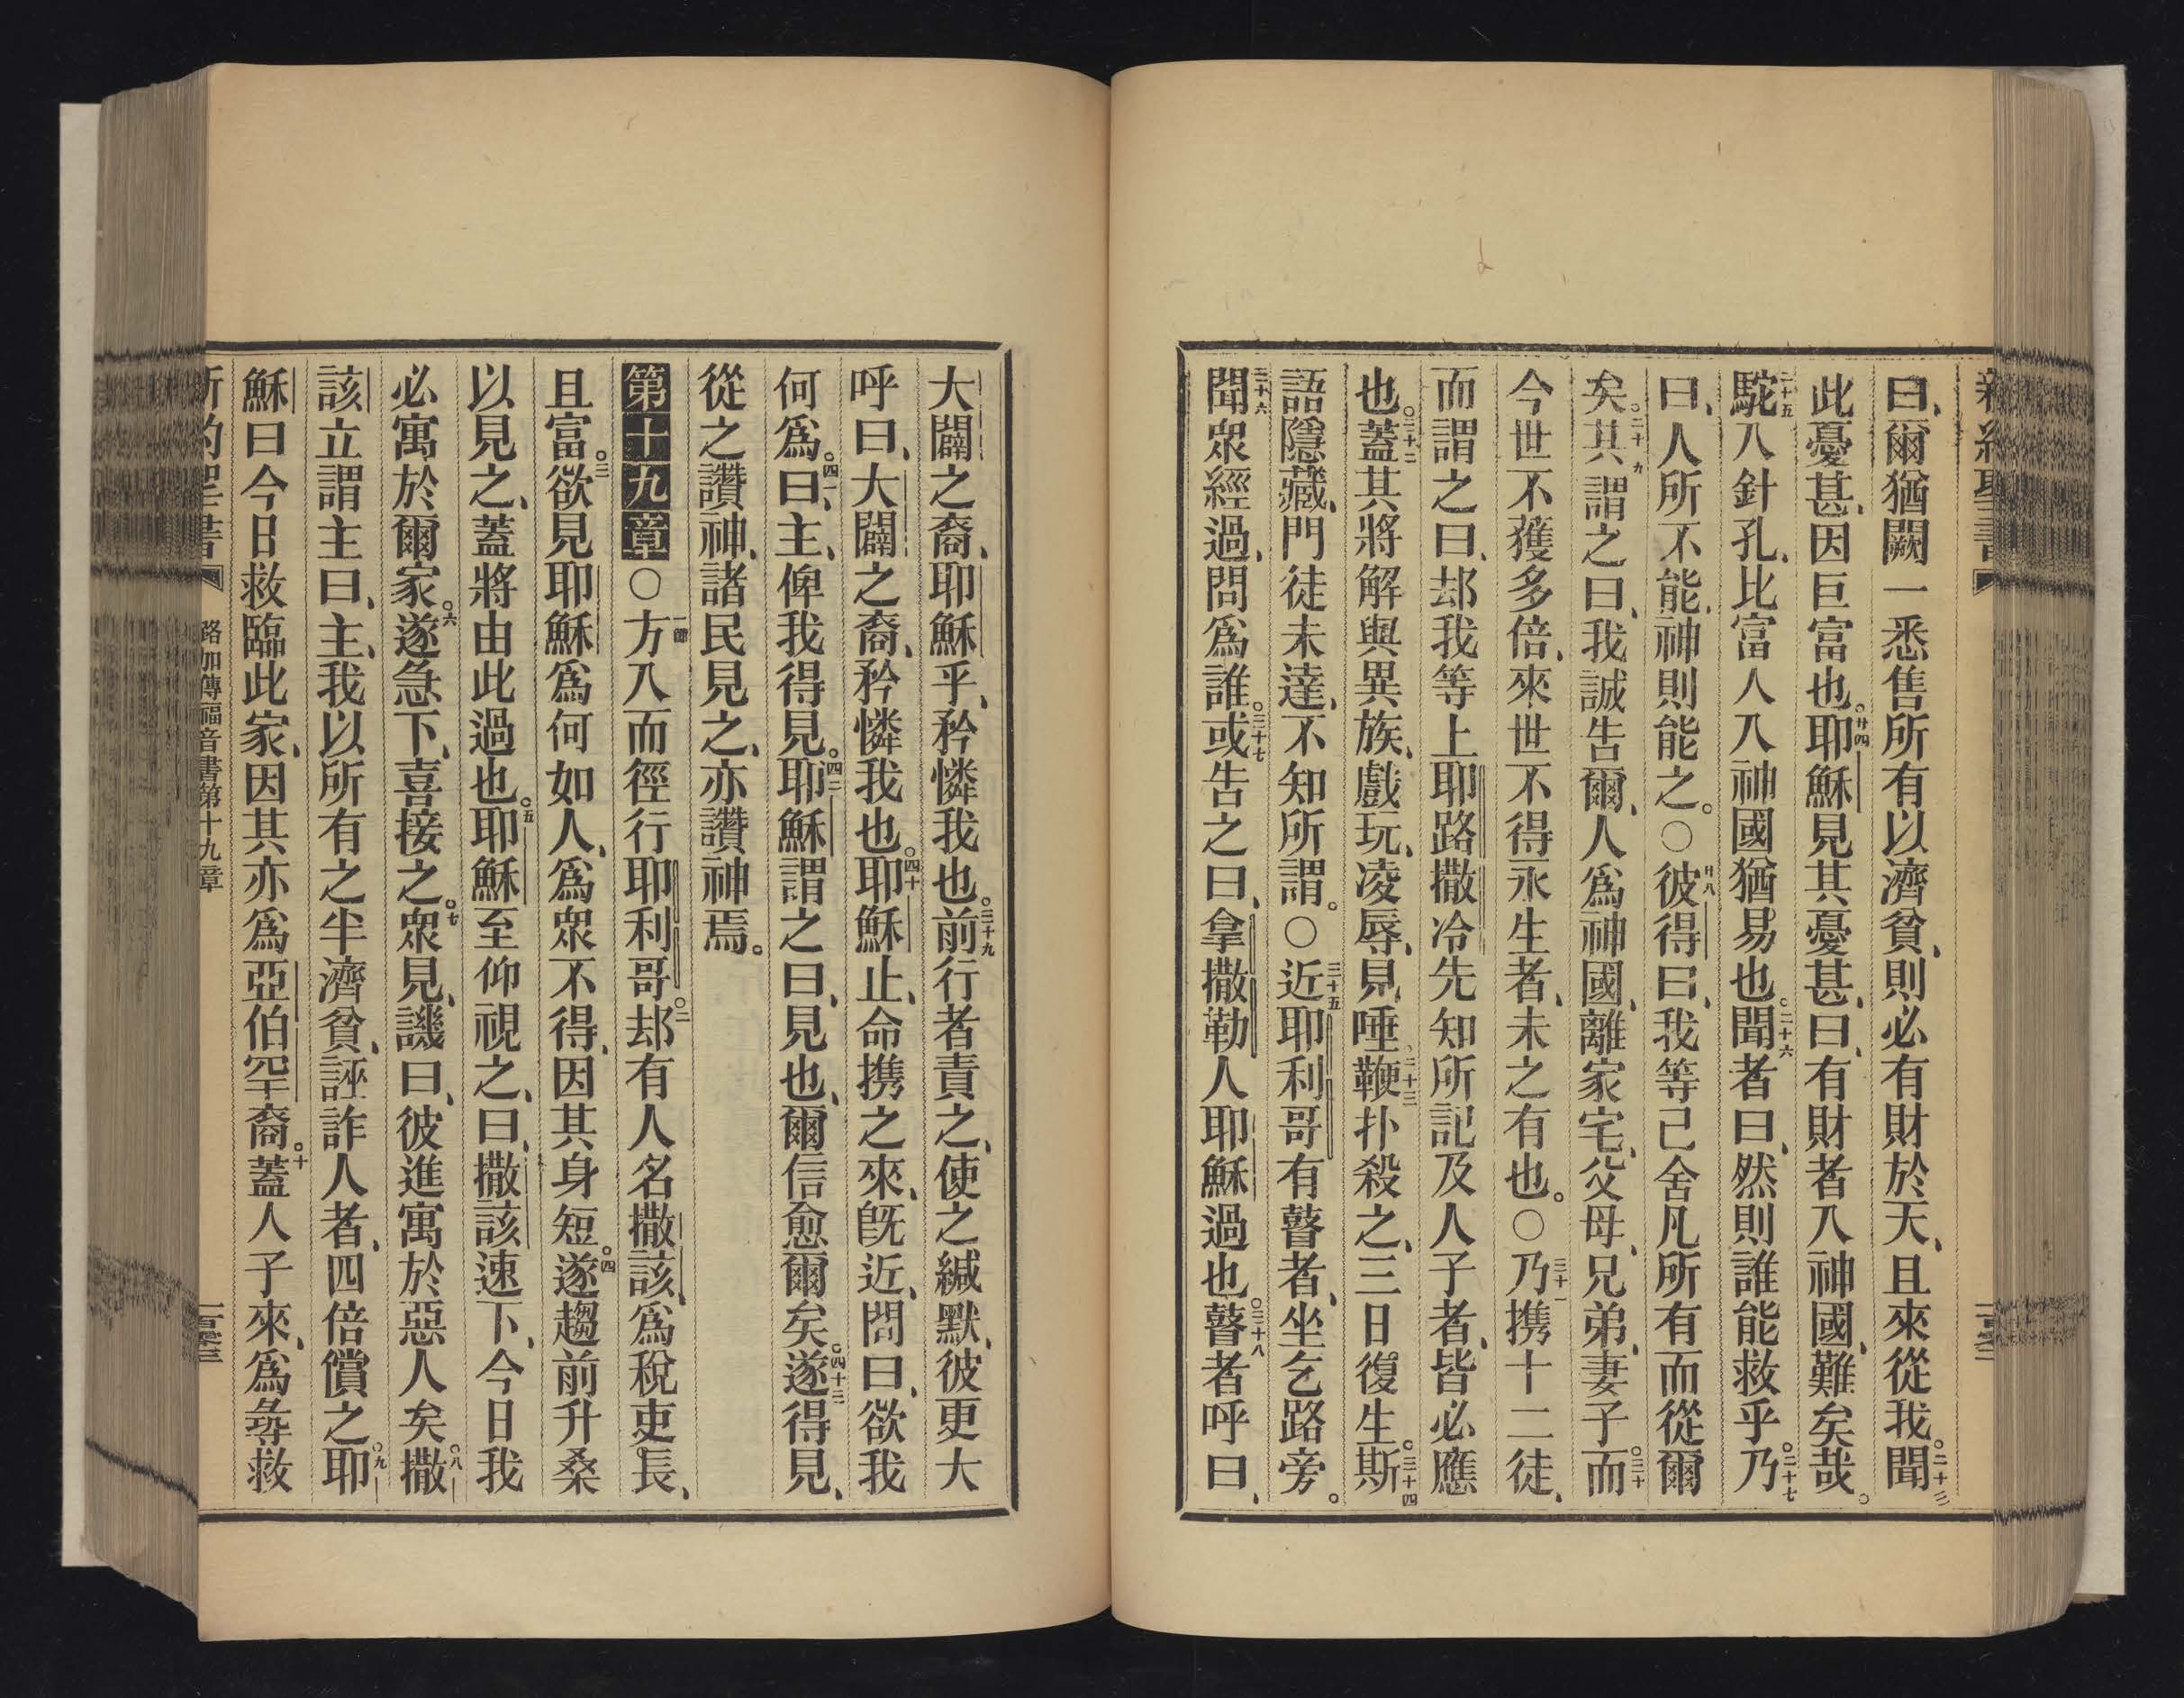 曰、爾猶闕一、悉售所有以濟貧、則必有財於天、且來從我。二十三聞
此憂甚、因巨富也。廿四耶穌見其憂甚、曰、有財者入神國、難矣哉。
二十五駝入針孔、比富人入神國猶易也。二十六聞者曰、然則誰能救乎。二十七乃
曰、人所不能、神則能之。〇廿八彼得曰、我等已舍凡所有而從爾
矣。二十九其謂之曰、我誠告爾、人爲神國、離家宅、父母、兄弟、妻子、三十而
今世不獲多倍、來世不得永生者、未之有也。〇三十一乃携十二徒、
而謂之曰、却我等上耶路撒冷、先知所記及人子者、皆必應
也。三十二蓋其將解與異族、戲玩、凌辱、見唾、三十三鞭扑殺之、三日復生。三十四斯
語隱藏、門徒未達、不知所謂。〇三十五近耶利哥、有瞽者、坐乞路旁。
三十六聞眾經過、問爲誰。三十七或告之曰、拿撒勒人耶穌過也。三十八瞽者呼曰、
大闢之裔、耶穌乎、矜憐我也。三十九前行者責之、使之緘默、彼更大
呼曰、大闢之裔、矜憐我也。四十耶穌止、命携之來、旣近、問曰、欲我
何爲。四一曰、主、俾我得見。四二耶穌謂之曰、見也、爾信愈爾矣。四十三遂得見、
從之讚神、諸民見之、亦讚神焉。
第十九章〇一節方入而徑行耶利哥。二却有人名撒該、爲稅吏長、
且富。三欲見耶穌爲何如人、爲眾不得、因其身短。四遂趨前升桑
以見之、蓋將由此過也。五耶穌至、仰視之、曰、撒該速下、今日我
必寓於爾家。六遂急下、喜接之。七眾見、譏曰、彼進寓於惡人矣。八撒
該立謂主曰、主、我以所有之半濟貧、誣詐人者、四倍償之。九耶
穌曰今日救臨此家、因其亦爲亞伯罕裔。十蓋人子來、爲尋救
新約聖書 路加傳福音書第十九章